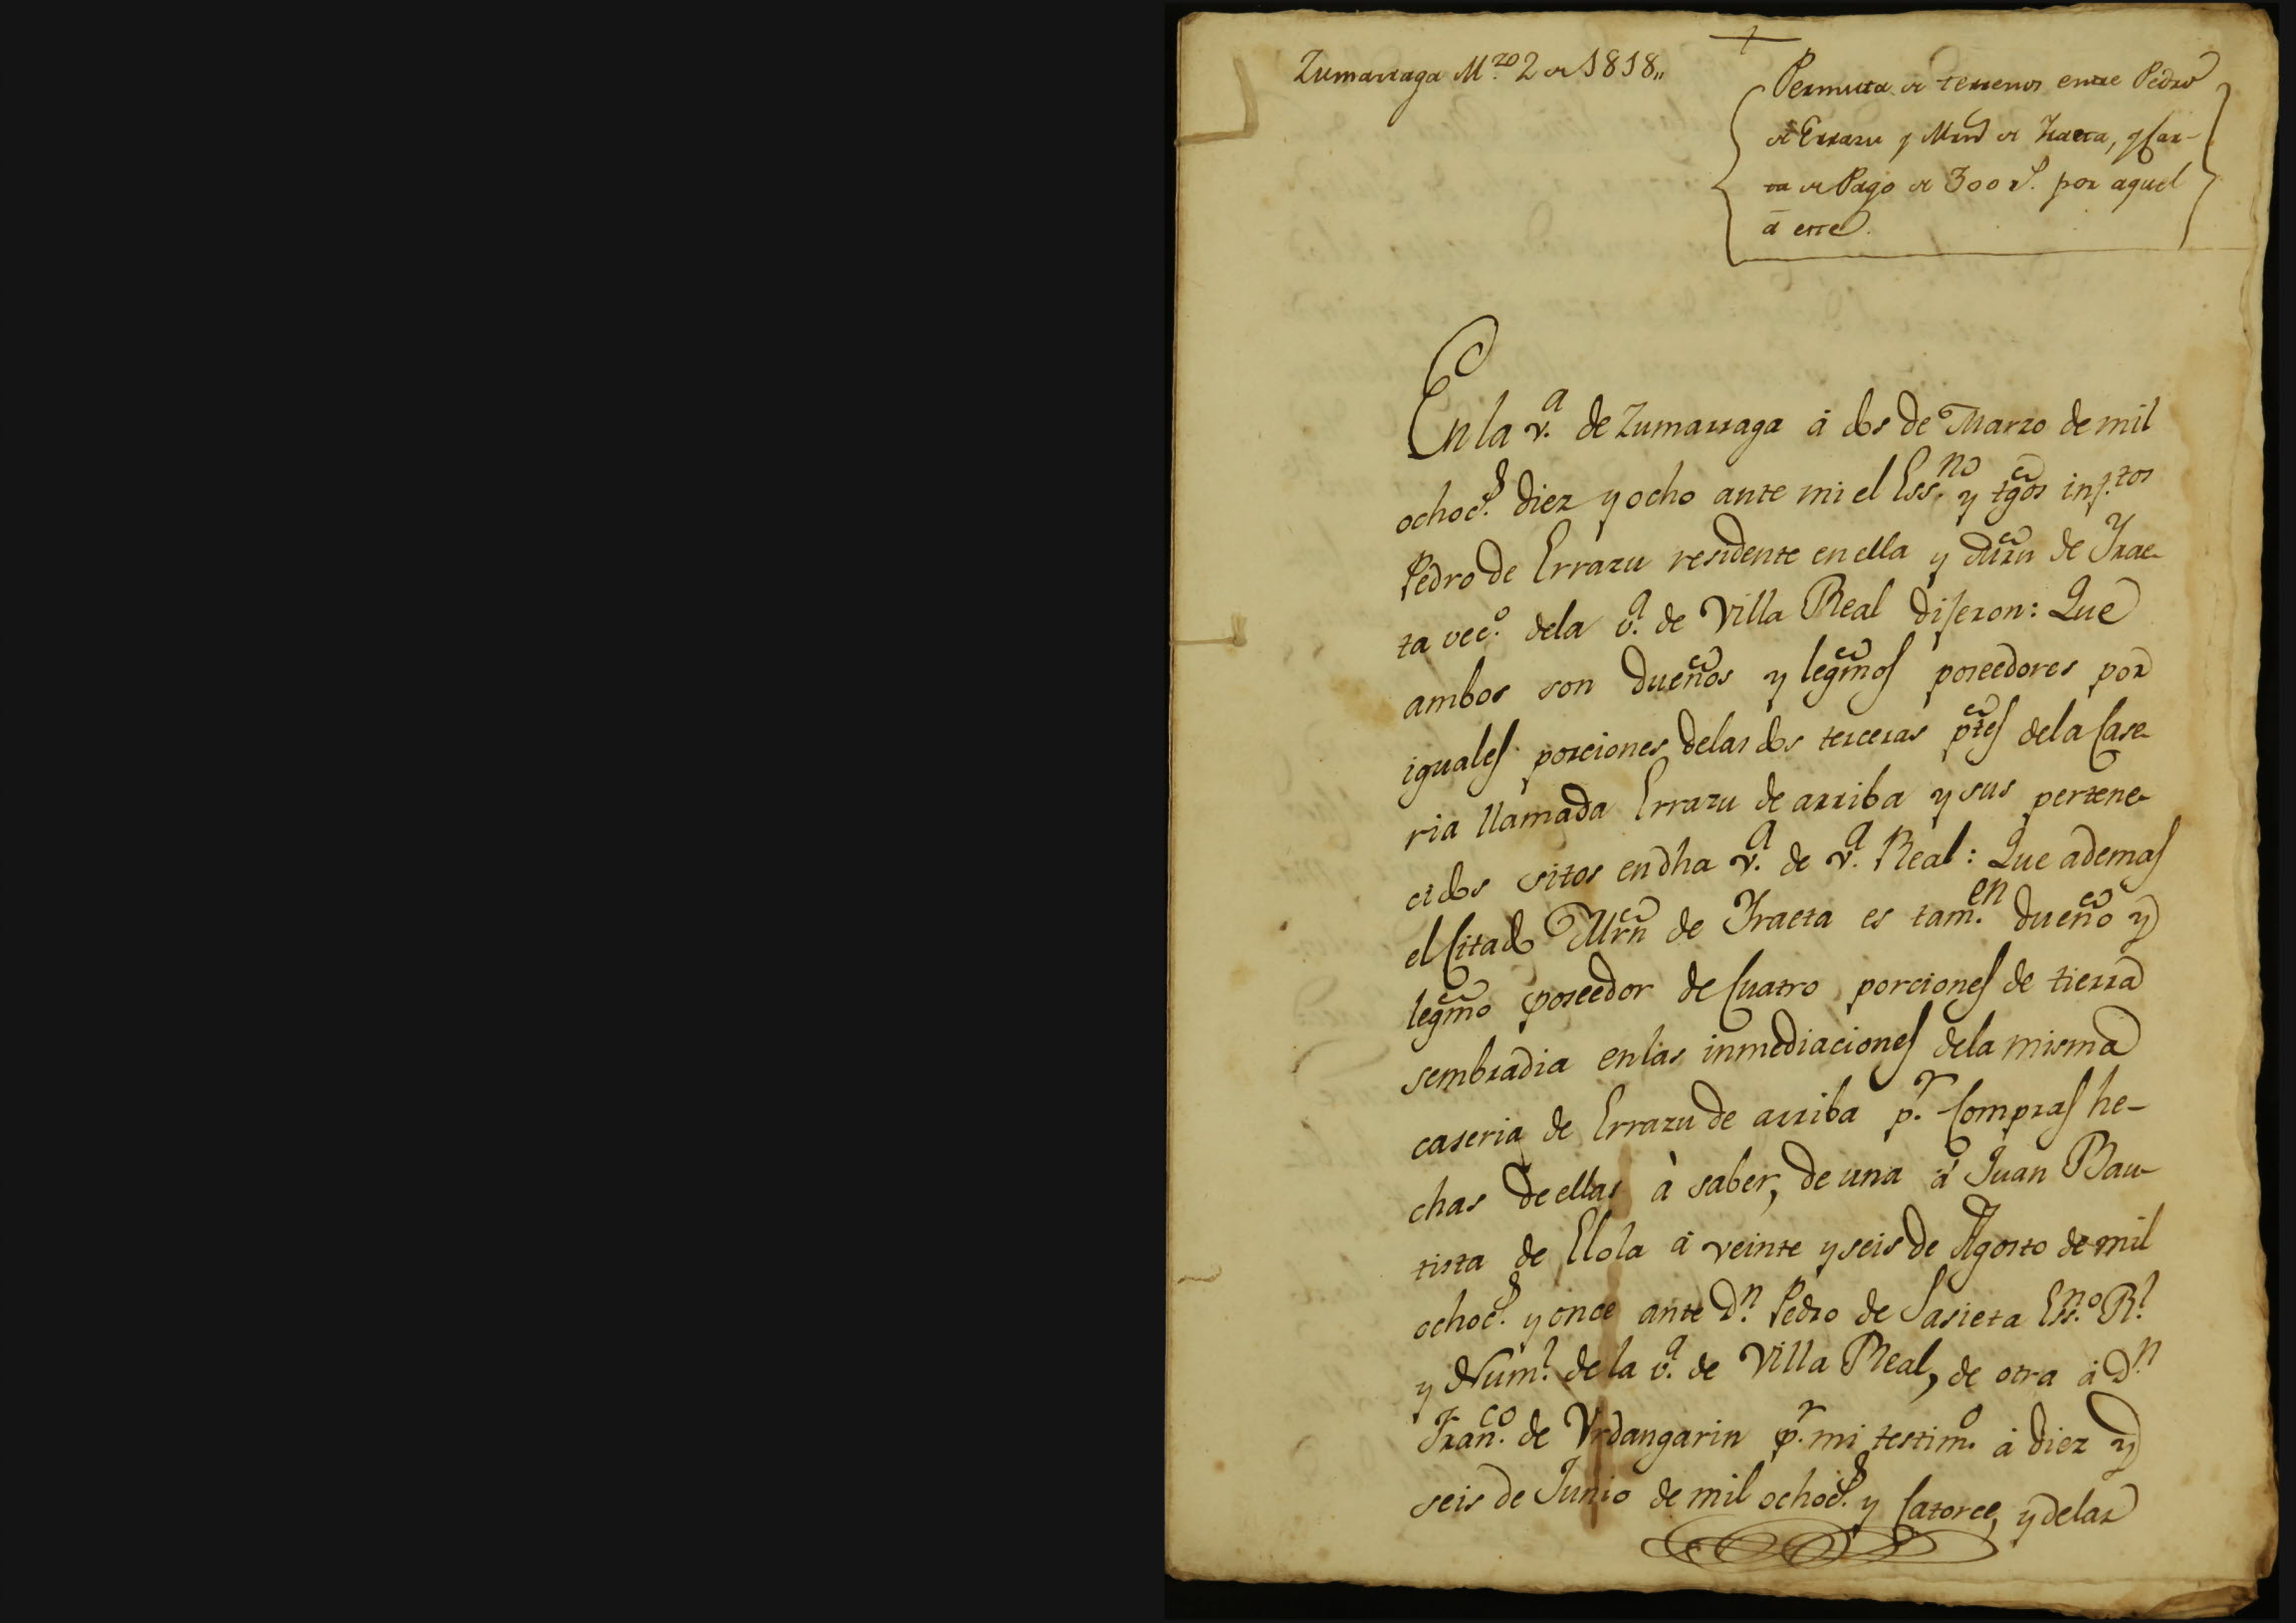 Zumarraga M.zo 2 de 1818,,
Permuta de terrenos entre Pedro
de Errazu y Mrn de Iraeta, y Car-
ta de Pago de 300 r.s por aquel
á este.
En la v.a de Zumarraga á dos de Marzo de mil
ochoc.s diez y ocho ante mi el Ess.no y tgos inf.tos
Pedro de Errazu residente en ella y Mrn de Irae-
ta vec.o dela v.a de Villa Real dijeron: Que
ambos son dueños y legmos poseedores por
iguales porciones delas dos terceras ptes dela Case-
ria llamada Errazu de arriba y sus pertene-
cidos sitos en dha v.a de v.a Real: Que ademas
el Citado Mrn de Iraeta es tam.en dueño y
legmo poseedor de Cuatro porciones de tierra
sembradia enlas inmediaciones dela misma
caseria de Errazu de arriba p.r Compras he-
chas de ellas à saber, de una á Juan Bau-
tista de Elola á veinte y seis de Agosto de mil
ochoc.s y once ante D.n Pedro de Sasieta Ess.no R.l
y Num.l de la v.a de Villa Real, de otra á D.n
Fran.co de Urdangarin p.r mi testim.o á diez y
seis de Junio de mil ochoc.s y Catorce, y delas